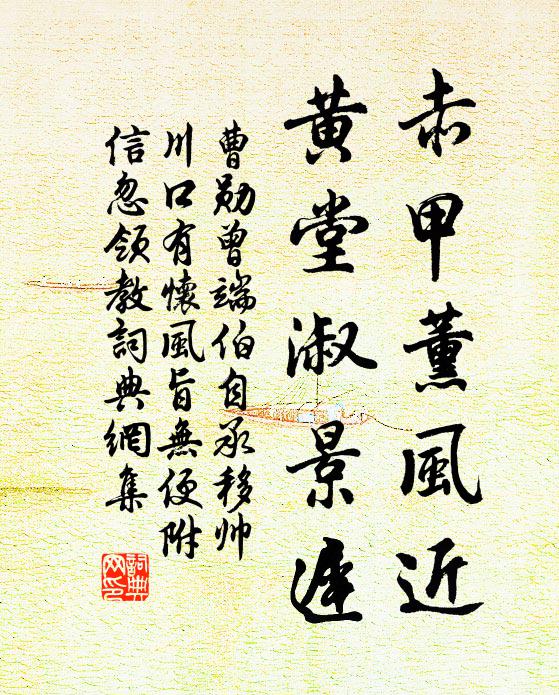 赤甲薰風近
黃堂淑景遲
曹勛曾端伯自承移帅
川口有懷風旨無便附
信忽領教詞典網集
詞典网印